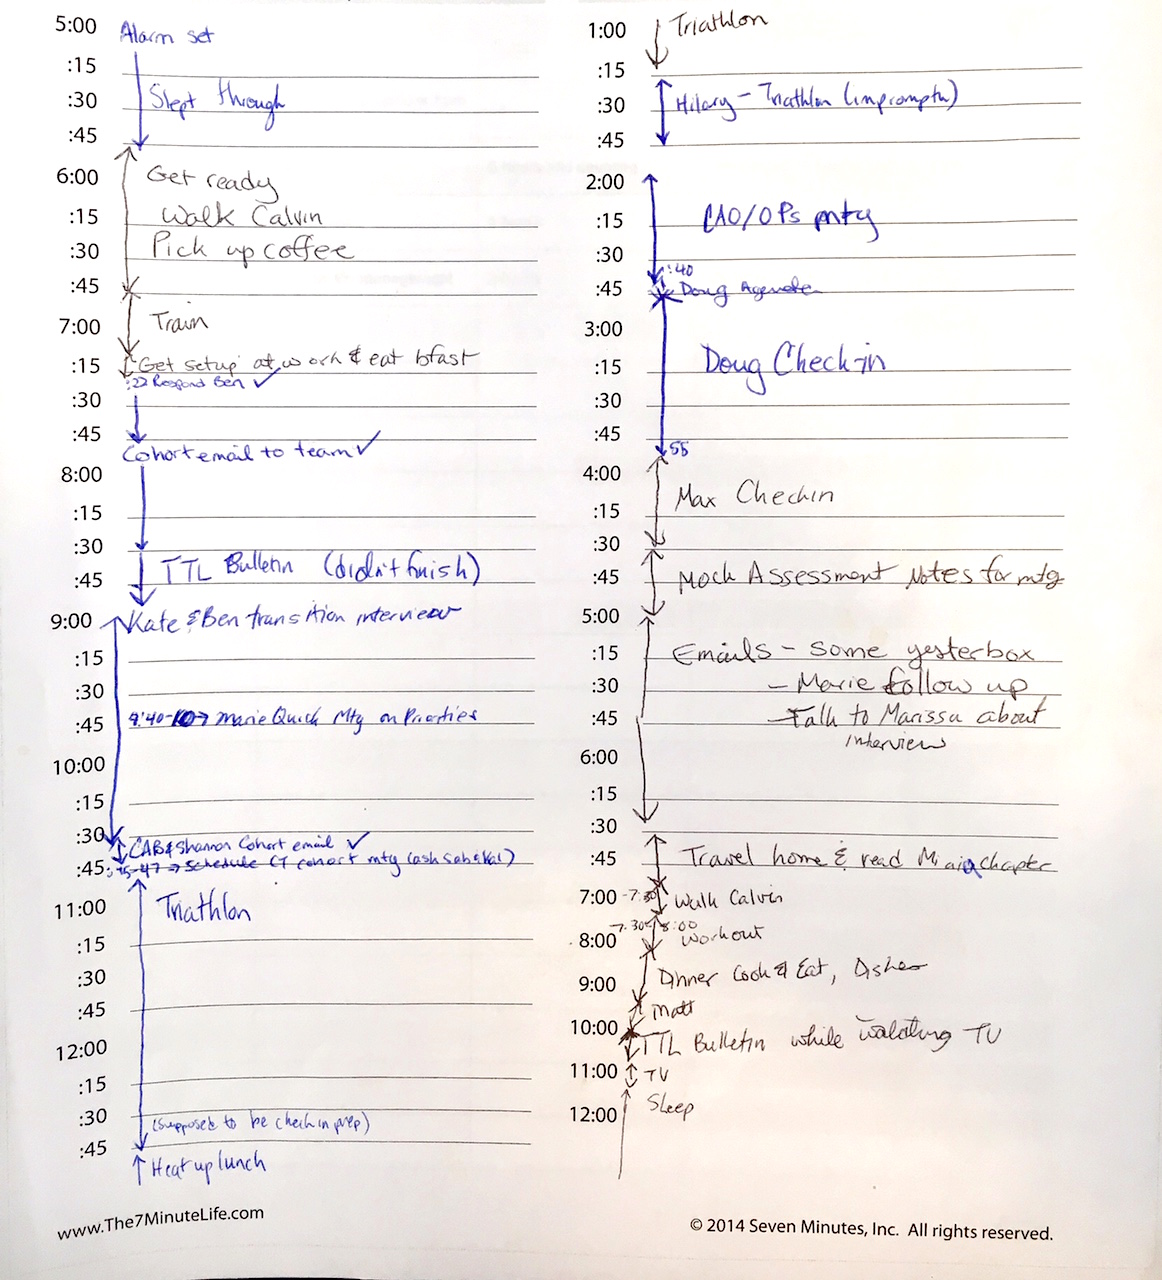 5:00 Alarm set
:15
:30 Slept through
:45
6:00 Get ready
:15 Walk Calvin
:30 Pick up coffee
:45
7:00 Train
:15 Get setup at work & eat bfast
:22 Respond Ben ✓
:30
:45
Cohort email to team ✓
8:00
:15
:30
:45 TTL Bulletin (didn't finish)
9:00 Kate & Ben transition interview
:15
:30
:45 9:40-10→ Marie Quick Mtg on Priorities
10:00
:15
:30
CAB & Shannon Cohort email ✓
:45 :45-47 → Schedule CT cohort mtg (ash sah &Kal)
11:00 Triathlon
:15
:30
:45
12:00
:15
:30 (supposed to be check in prep)
:45
Heat up lunch
www.The7MinuteLife.com
1:00 Triathlon
:15
:30 Hilary - Triathlon (impromptu)
:45
2:00
:15 CAO/OPs mtg
:30
:40
:45 Doug Agenda
3:00
:15 Doug Check-in
:30
:45
55
4:00 Max Checkin
:15
:30
:45 Mock Assessment Notes for mtg
5:00
:15 Emails - some yesterbox
:30 - Marie follow up
:45 - Talk to Marissa about
interview
6:00
:15
:30
:45 Travel home & read chapter
7:00 -7:30 Walk Calvin
7:30-8:00
8:00 Workout
9:00 Dinner Cook & Eat, Dishes
Matt
10:00 TTL Bulletin while watching TV
11:00 TV
12:00 Sleep
© 2014 Seven Minutes, Inc. All rights reserved.